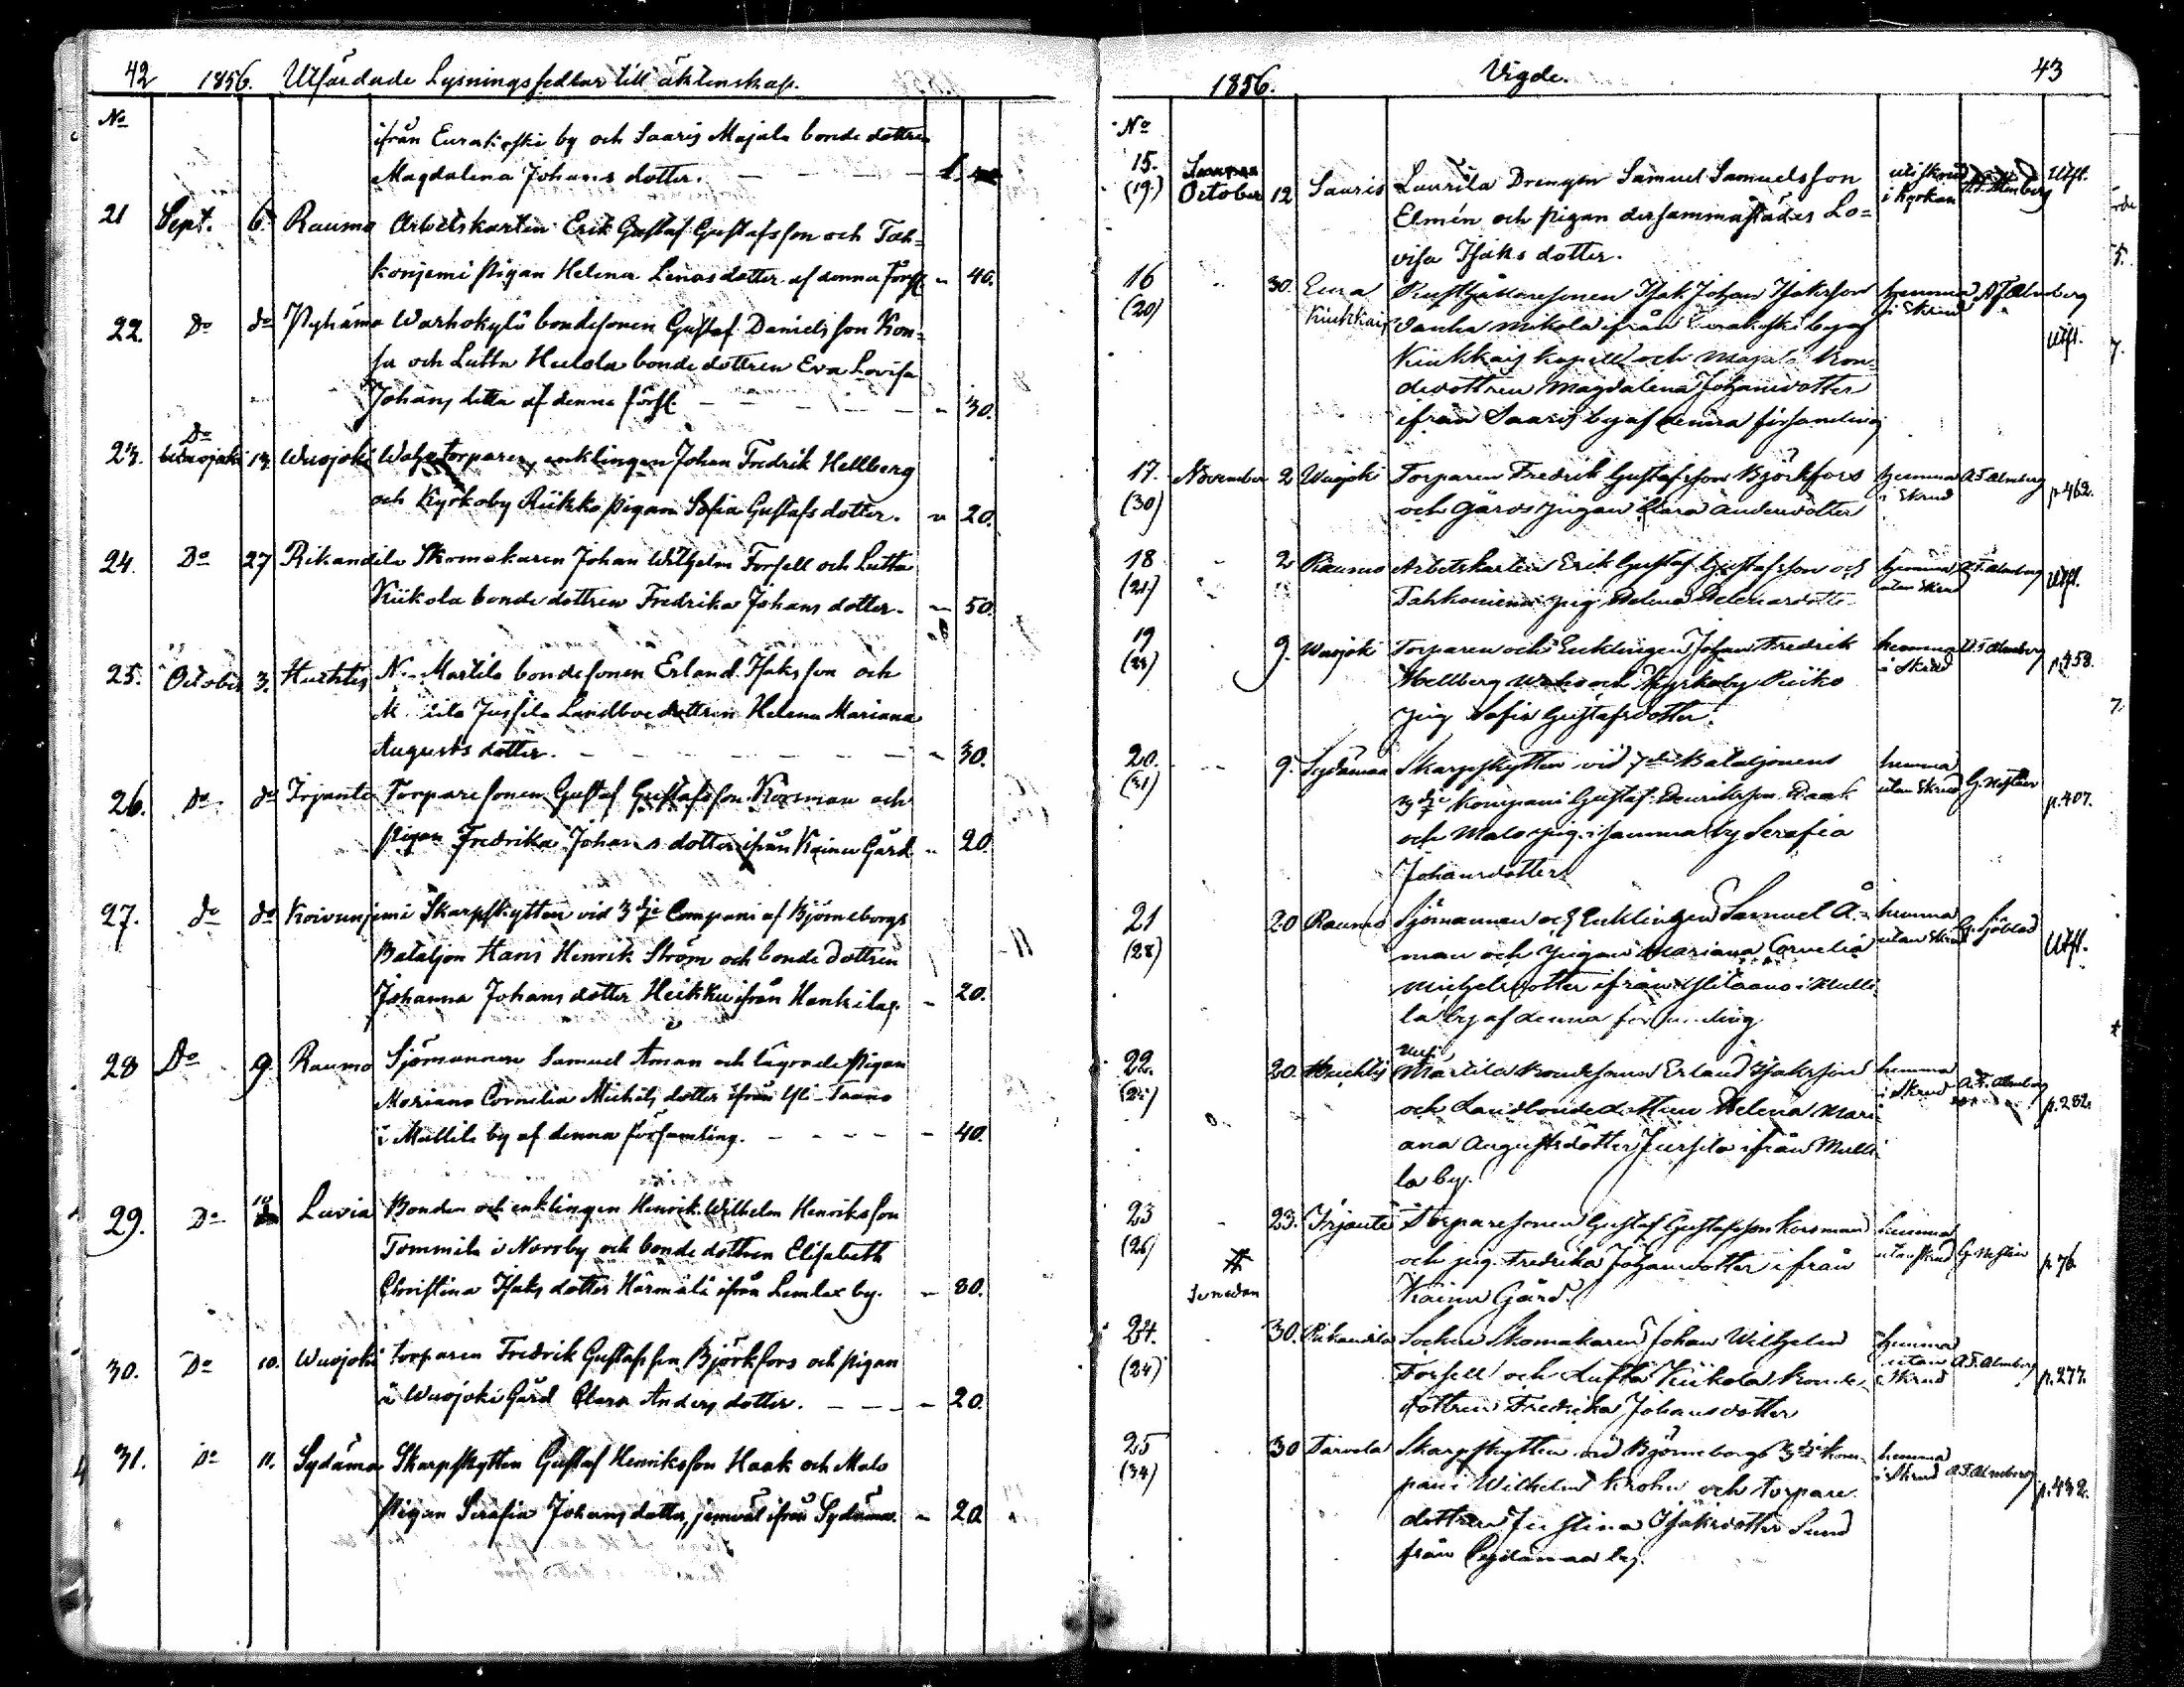 42 1856. Utfärdade Lysningssedlar till äktenskap.
No
ifrån Eurakoski by och Saaris Majala bonde dottren
Magdalena Johans dotter. — — — 1.
21 Sept. 6. Raumo Arbetskarlen Erik Gustaf Gustafsson och Tah=
konjemi pigan Helena Lenas dotter af denna förs. " 40.
22. Do do Pyhäma Warhokylä bondesonen Gustaf Danielsson Kon=
sa och Lutta Heulola bonde dottren Eva Lovisa
Johans dotter af denna förs. — — — — " 30.
23. Do 13. Wuojoki torparen, enklingen Johan Fredrik Hellberg
och Kyrkoby Riikko pigan Sofia Gustafs dotter. " 20.
24. Do 27 Rikandila Skomakaren Johan Wilhelm Forsell och Lutta
Kiikola bonde dottren Fredrika Johans dotter. — 50.
25. October 3. Huhtis N. Martila bondesonen Erland Isaksson och
Jussila Landboe dottren Helena Mariana
Augusts dotter. — — — — — — " 30.
26. Do do Irjante Torparesonen Gustaf Gustafsson Korsman och
pigan Fredrika Johans dotter ifrån Kainu Gård " 20.
27. do do Koivunjemi Skarpskytten vid 3dje Compani af Björneborgs
Bataljon Hans Henrik Ström och bonde dottren
Johanna Johans dotter Heikku ifrån Hankila. — 20.
28 Do 9. Raumo Sjömannen Samuel Åman och lägrade pigan
Mariana Cornelia Michels dotter ifrån Yli-Taano
i Mullila by af denna församling. — — — — — 40.
29. Do 10 Luvia Bonden och enklingen Henrik Wilhelm Henriksson
Tommila i Norrby och bonde dottren Elisabeth
Christina Isaks dotter Härmälä ifrån Lemlax by. — 80.
30. Do 10. Wuojoki torparen Fredrik Gustafsson Björkfors och pigan
å Wuojoki Gård Clara Anders dotter. — — — — 20.
31. Do 11. Sydäma Skarpskytten Gustaf Henriksson Haak och Malo
pigan Serafia Johans dotter, jemväl ifrån Sydäma. — 20
1856. Vigde. 43
No
15. October 12 Saaris Laurila Drengen Samuel Samuelsson i Kyrkan A.F. Almberg Utft.
(19) Elmén och pigan dersammastädes Lo=
visa Isaks dotter.
16 30. Eura Rusthållaresonen Isak Johan Isaksson hemma i Skrud A.F. Almberg
(20) Kiukkais Vanha Mikola ifrån Eurakoski by af Utft.
Kiukkais kapell och Majala bon=
dedottren Magdalena Johansdotter
ifrån Saaris by af denna församling
17. November 2 Wuojoki Torparen Fredrik Gustafsson Björkfors hemma i Skrud A.F. Almberg p. 462.
(30) och Gårdspigan Clara Andersdotter
18 2 Raumo Arbetskarlen Erik Gustaf Gustafsson och hemma utan Skrud A.F. Almberg Utft.
(21) pig. Helena
19 9. Wuojoki Torparen och Enklingen Johan Fredrik hemma i Skrud A.F. Almberg p. 458.
(23) Hellberg och Kyrkoby Riiko
pig Sofia Gustafsdotter.
20. 9. Sydämaa Skarpskytten vid 7de Bataljonens hemma utan Skrud p. 407.
(31) 3dje kompani Gustaf Henriksson Haak
och Malo pig. i samma by Serafia
Johansdotter
21 20 Raumo Sjömannen och Enklingen Samuel Å= hemma utan Skrud G. Sjöblad Utft.
(28) man och pigan Mariana Cornelia
Michelsdotter ifrån Ylitaano i Mulli
la by af denna församling
22. 20. Huhtis Martila bondesonen Erland Isaksson hemma i Skrud A.F. Almberg p. 282.
(25) och Landbondedottren Helena Mari
ana Augustsdotter Jussila ifrån Mulli
la by.
23 23. Irjante Torparesonen Gustaf Gustafsson Korsman hemma utan Skrud p. 76.
(26) och pig. Fredrika Johansdotter ifrån
# Kainu Gård.
24. 30. Rikandila Socken Skomakaren Johan Wilhelm hemma utan Skrud A.F. Almberg p. 277.
(24) Forsell och Lutta Kiikola bonde
dottren Fredrika Johansdotter
25 30 Tarvola Skarpskytten vid Björneborgs 3dje kom= hemma i Skrud A.F. Almberg p. 432.
(34) pani Wilhelm Krohn och torpare
dottren Justina Isaksdotter Sund
från Sydämaa by.